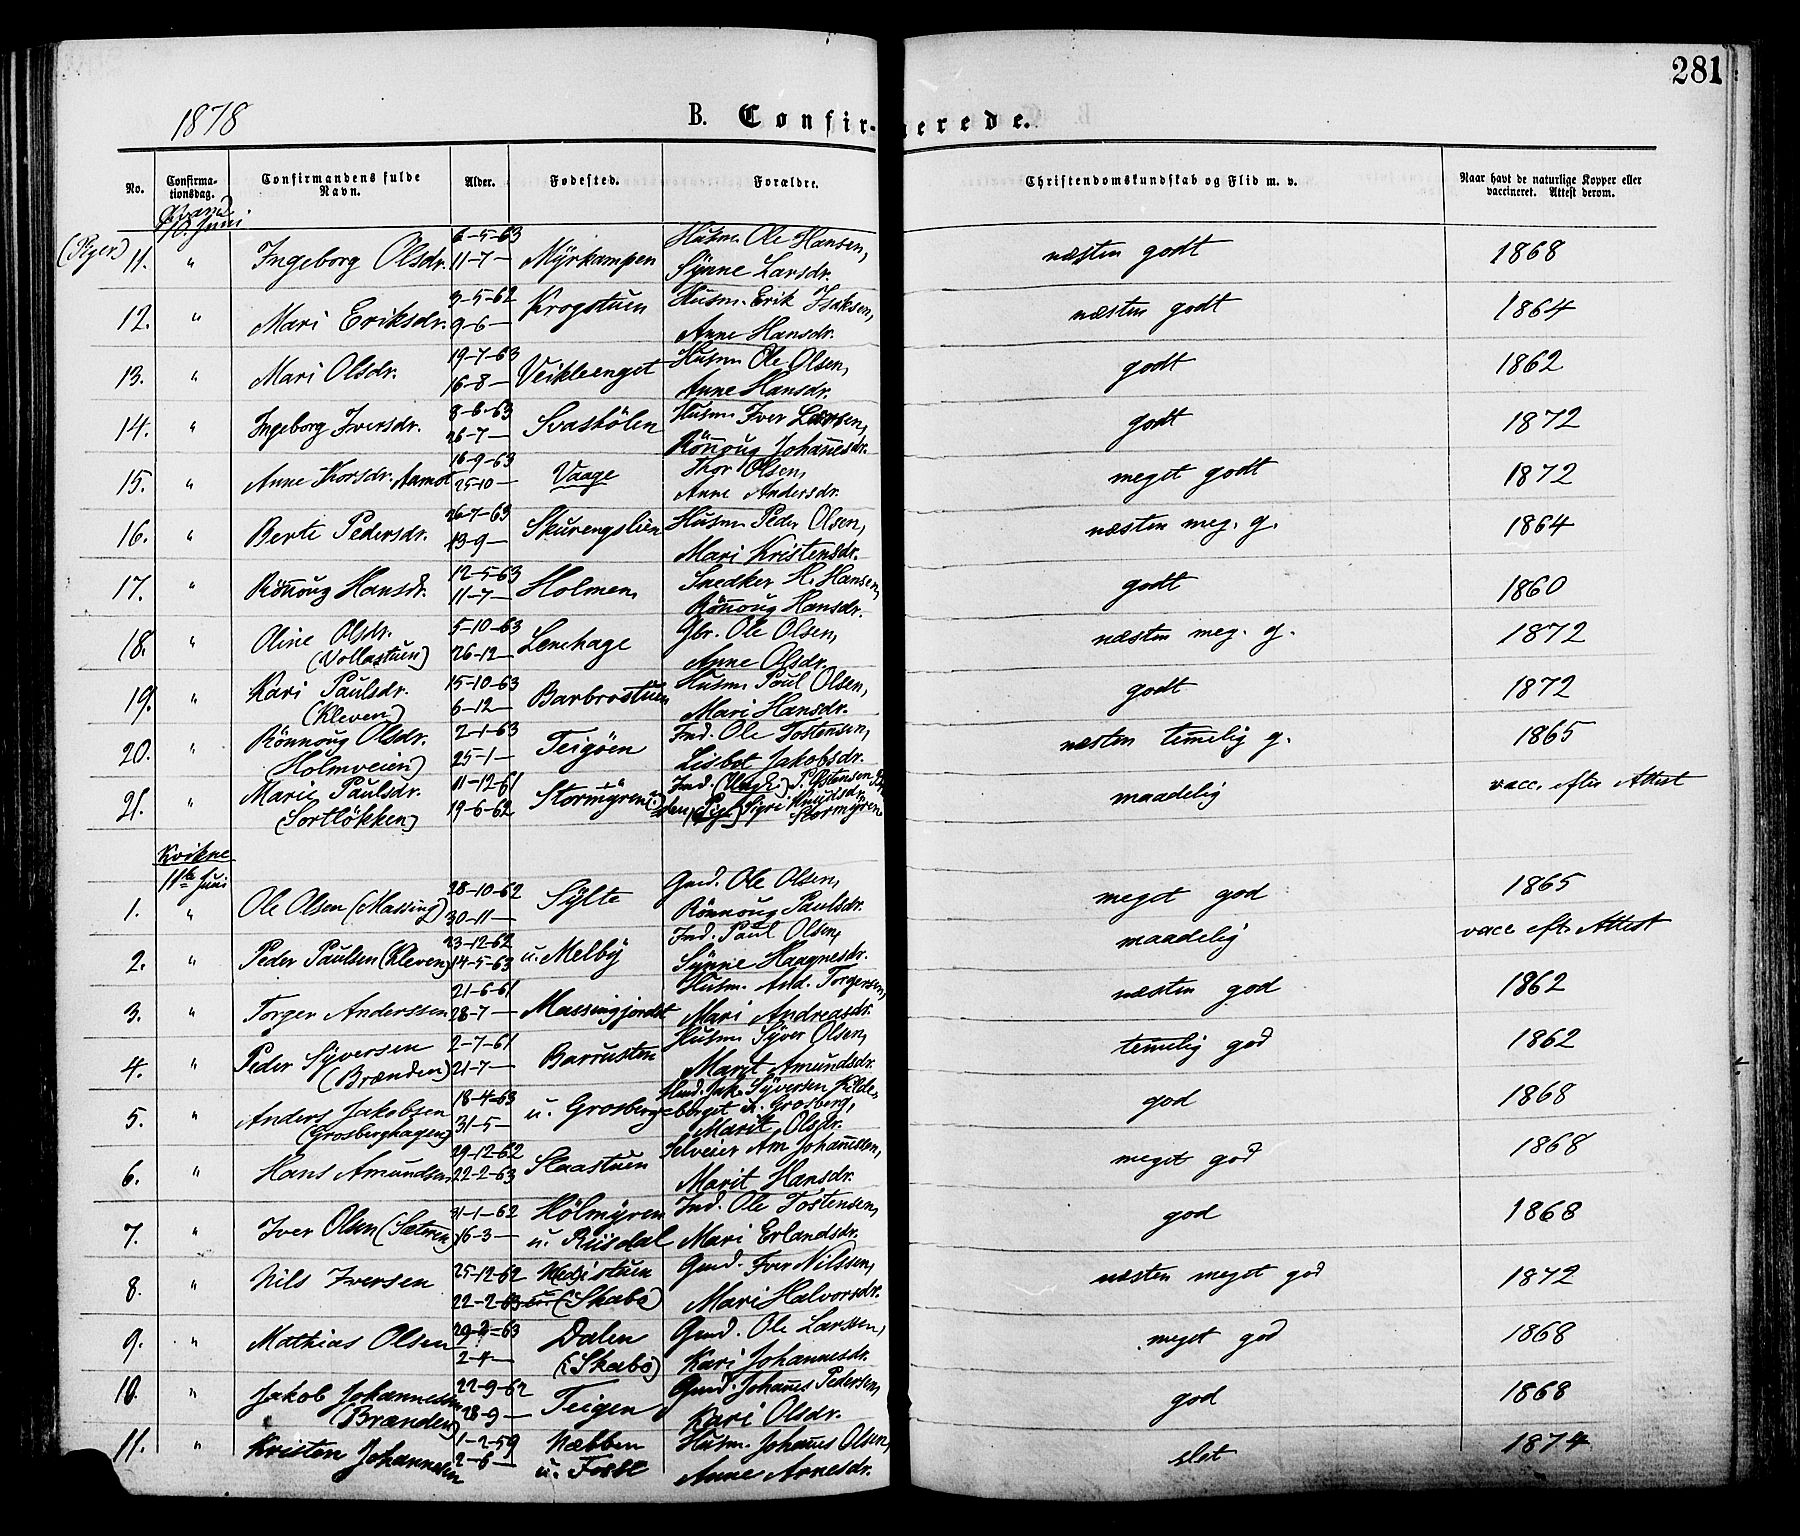 281
1878
B. Confirmerede.
No. Confirmationsdag. Confirmandens fulde Navn. Alder. Fødested. Forældre. Christendomskundskab og Flid m. v. Naar havt de naturlige Kopper eller vaccineret. Attest derom.
10. Juni
(Piger)
11. " Ingeborg Olsdr. 6-5-63 11-7— Myrkampen Husm. Ole Hansen, Synne Larsdr. næsten godt 1868
12. " Mari Eriksdr. 3-5-62 9-6— Krogstuen Husm. Erik Isaksen, Anne Hansdr. næsten godt 1864
13. " Mari Olsdr. 19-7-63 16-8— Veikleenget Husm. Ole Olsen, Anne Hansdr. godt 1862
14. " Ingeborg Iversdr. 8-6-63 26-7— Svashölen Husm. Iver Larsen, Rönnoug Johannesdr. godt 1872
15. " Anne Thorsdr. Aamot 16-9-63 25-10— Vaage Thor Olsen, Anne Andersdr. meget godt 1872
16. " Berte Pedersdr. 26-7-63 13-9— Skurengslien Husm. Peder Olsen, Mari Kristensdr. næsten meg. g. 1864
17. " Rönnoug Hansdr. 12-5-63 11-7— Holmen Snedker H. Hansen, Rönnoug Hansdr. godt 1860
18. " Oline Olsdr. (Vollastuen) 5-10-63 26-12— Lenehage Gbr. Ole Olsen, Anne Olsdr. næsten meg. g. 1872
19. " Kari Paulsdr. (Kleven) 15-10-63 6-12— Barbrostuen Husm. Poul Olsen, Mari Hansdr. godt 1872
20. " Rönnoug Olsdr. (Holmveien) 2-1-63 25-1— Teigöen Ind. Ole Tostensen, Lisbet Jakobsdr. næsten temmelig g. 1865
21. " Marie Paulsdr. (Sortlökken) 11-12-61 19-6-62 Stormyren Ind. (Ungk.) P. Östensen (Pige) Sigri Knudsdr. Stormyren maadelig vacc. efter Attest
Kvikne
11te Juni
1. " Ole Olsen (Massing) 28-10-62 30-11— Sylte Gmd. Ole Olsen, Rönnoug Paulsdr. meget god 1865
2. " Peder Paulsen (Kleven) 23-12-62 14-5-63 u. Melby Ind. Paul Olsen, Synne Haagnesdr. maadelig vacc. eft. Attest
3. " Torger Anderssen 21-6-61 28-7— Massingjordet Husm. And. Torgersen, Mari Andreasdr. næsten god 1862
4. " Peder Syversen (Brænden) 2-7-61 21-7— Barrusten Husm. Syver Olsen, Marit Amundsdr. temmelig god 1862
5. " Anders Jakobsen (Grosberghagen) 18-4-63 31-5— u. Grosberg Husm. Jak. Syversen Kildeberget u. Grosberg, Marit Olsdr. god 1868
6. " Hans Amundsen 29-12-62 22-2-63 Slaastuen Selveier Am. Johannessen, Marit Hansdr. meget god 1868
7. " Iver Olsen (Sæteren) 31-1-62 16-3— Hölmyren u. Riisdal Ind. Ole Tostensen, Mari Erlandsdr. god 1868
8. " Nils Iversen 25-12-62 22-2-63 Nedistuen (i Skabo) Gmd. Iver Nilssen, Mari Halvorsdr. næsten meget god 1872
9. " Mathias Olsen 20-2-63 2-4— Dalen (i Skabo) Gmd. Ole Larssen, Kari Johannesdr. meget god 1868
10. " Jakob Johannessen (Brænden) 22-9-62 28-9— Teigen Gmd. Johannes Pedersen, Kari Olsdr. god 1868
11. " Kristen Johannessen 1-2-59 2-6— Næbben u. Fosse Husm. Johannes Olsen, Anne Arnesdr. slet 1874